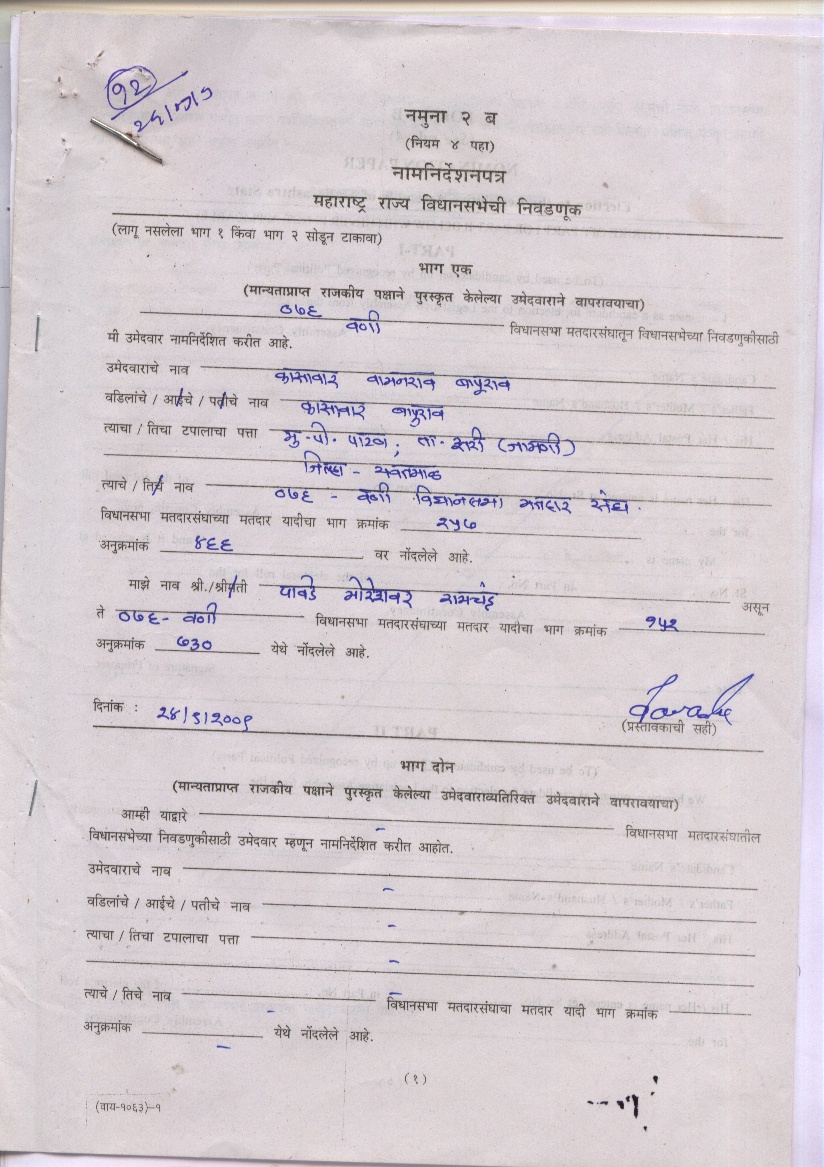 १२
नमुना २ ब
(नियम ४ पहा)
नामनिर्देशनपत्र
महाराष्ट्र राज्य विधानसभेची निवडणूक
(लागू नसलेला भाग १ किंवा भाग २ सोडून टाकावा)
भाग एक
(मान्यताप्राप्त राजकीय पक्षाने पुरस्कृत केलेल्या उमेदवाराने वापरावयाचा)
०७६ वणी विधानसभा मतदारसंघातून विधानसभेच्या निवडणुकीसाठी
मी उमेदवार नामनिर्देशित करीत आहे.
उमेदवाराचे नाव कासावार वामनराव बापूराव
वडिलांचे / आईचे / पतीचे नाव कासावार बापुराव
त्याचा / तिचा टपालाचा पत्ता मु.पो. पाटण, ता. झरी (जामणी)
जिल्हा - यवतमाळ
त्याचे / तिचे नाव ०७६ - वणी विधानसभा मतदार संघ.
विधानसभा मतदारसंघाच्या मतदार यादीचा भाग क्रमांक २५७
अनुक्रमांक ४६६ वर नोंदलेले आहे.
माझे नाव श्री./श्रीमती पावडे मोरेश्वर रामचंद्र असून
ते ०७६- वणी विधानसभा मतदारसंघाच्या मतदार यादीचा भाग क्रमांक १५१
अनुक्रमांक ७३० येथे नोंदलेले आहे.
दिनांक : २४/९/२००९
(प्रस्तावकाची सही)
भाग दोन
(मान्यताप्राप्त राजकीय पक्षाने पुरस्कृत केलेल्या उमेदवाराव्यतिरिक्त उमेदवाराने वापरावयाचा)
आम्ही याद्वारे - विधानसभा मतदारसंघातील
विधानसभेच्या निवडणुकीसाठी उमेदवार म्हणून नामनिर्देशित करीत आहोत.
उमेदवाराचे नाव -
वडिलांचे / आईचे / पतीचे नाव -
त्याचा / तिचा टपालाचा पत्ता -
त्याचे / तिचे नाव - विधानसभा मतदारसंघाचा मतदार यादी भाग क्रमांक
अनुक्रमांक - येथे नोंदलेले आहे.
(१)
(वाय-१०६३)-१